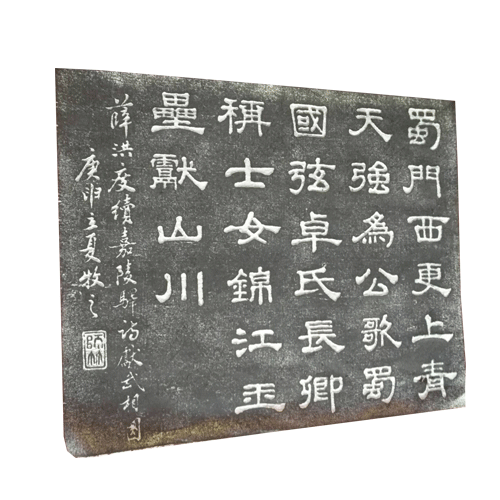 蜀門西更上青
天強為公歌蜀
國弦卓氏長卿
稱士女錦江玉
壘獻山川
薛洪度續嘉陵驛詩獻武相國
庚申立夏牧之